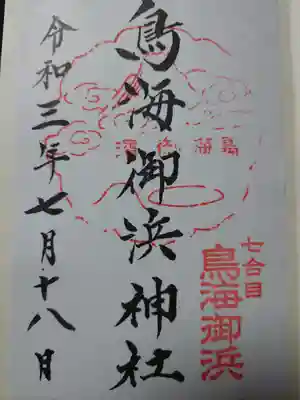 七合目
鳥海御浜
鳥海御浜神社
令和三年七月十八日